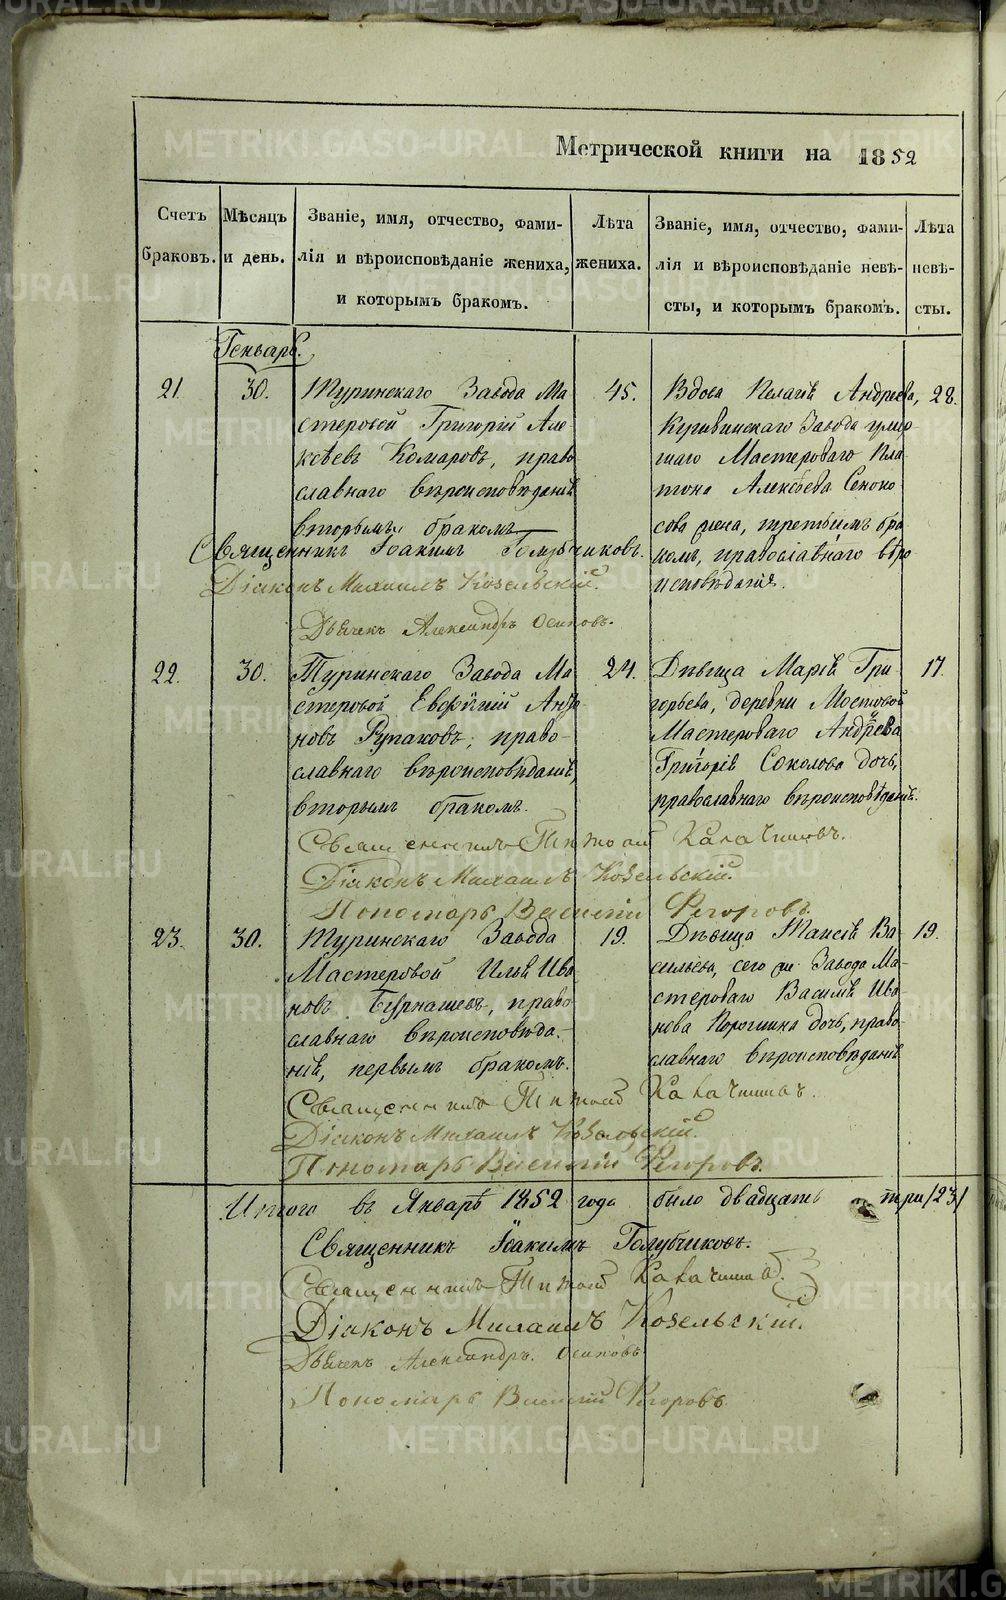 Метрической книги на 1852
Счетъ браковъ.
Мѣсяцъ и день.
Званіе, имя, отчество, фами-
лія и вѣроисповѣданіе жениха,
и которымъ бракомъ.
Лѣта жениха.
Званіе, имя, отчество, фами-
лія и вѣроисповѣданіе невѣ-
сты, и которымъ бракомъ.
Лѣта невѣ-
сты.
Генварь.
21.
30.
Туринскаго Завода Ма
стеровой Григорій Але
ксѣевъ Комаровъ, право
славнаго вѣроисповѣданія
вторымъ бракомъ
45.
Вдова Пелагія Андреева,
Кушвинскаго Завода умер
шаго Мастероваго Пла
тона Алексѣева Сеноко
сова жена, третьимъ бра
комъ, православнаго вѣро
исповѣданія.
28.
Священникъ Іоакимъ Голубчиковъ.
Діаконъ Михаилъ Козельскій.
Дьячекъ Александръ Осиповъ.
22.
30.
Туринскаго Завода Ма
стеровой Евфимій Андр
новъ Рупаковъ, право-
славнаго вѣроисповѣданія,
вторымъ бракомъ.
24.
Дѣвица Марія Гри-
горьева, деревни Мостовой
Мастероваго Андрѣева
Григорія Соколова дочь,
православнаго вѣроисповѣданія.
17.
Священникъ Титъ Калачниковъ.
Діаконъ Михаилъ Козельскій.
Пономарь Василій Егоровъ.
23.
30.
Туринскаго Завода
Мастеровой Илья Ива
новъ Бурнашевъ, право
славнаго вѣроисповѣда-
нія, первымъ бракомъ.
19.
Дѣвица Таисія Ва
сильева, сего же Завода Ма-
стероваго Василія Ива-
нова Порошина дочь, право-
славнаго вѣроисповѣданія
19.
Священникъ
Діаконъ Михаилъ Козельскій.
Пономарь Василій Егоровъ.
Итого въ Январѣ 1852 года было двадцать три /23/
Священникъ Іоакимъ Голубчиковъ.
Священникъ
Діаконъ Михаилъ Козельскій.
Дьячекъ Александръ Осиповъ
Пономарь Василій Егоровъ
METRIKI.GASO-URAL.RU